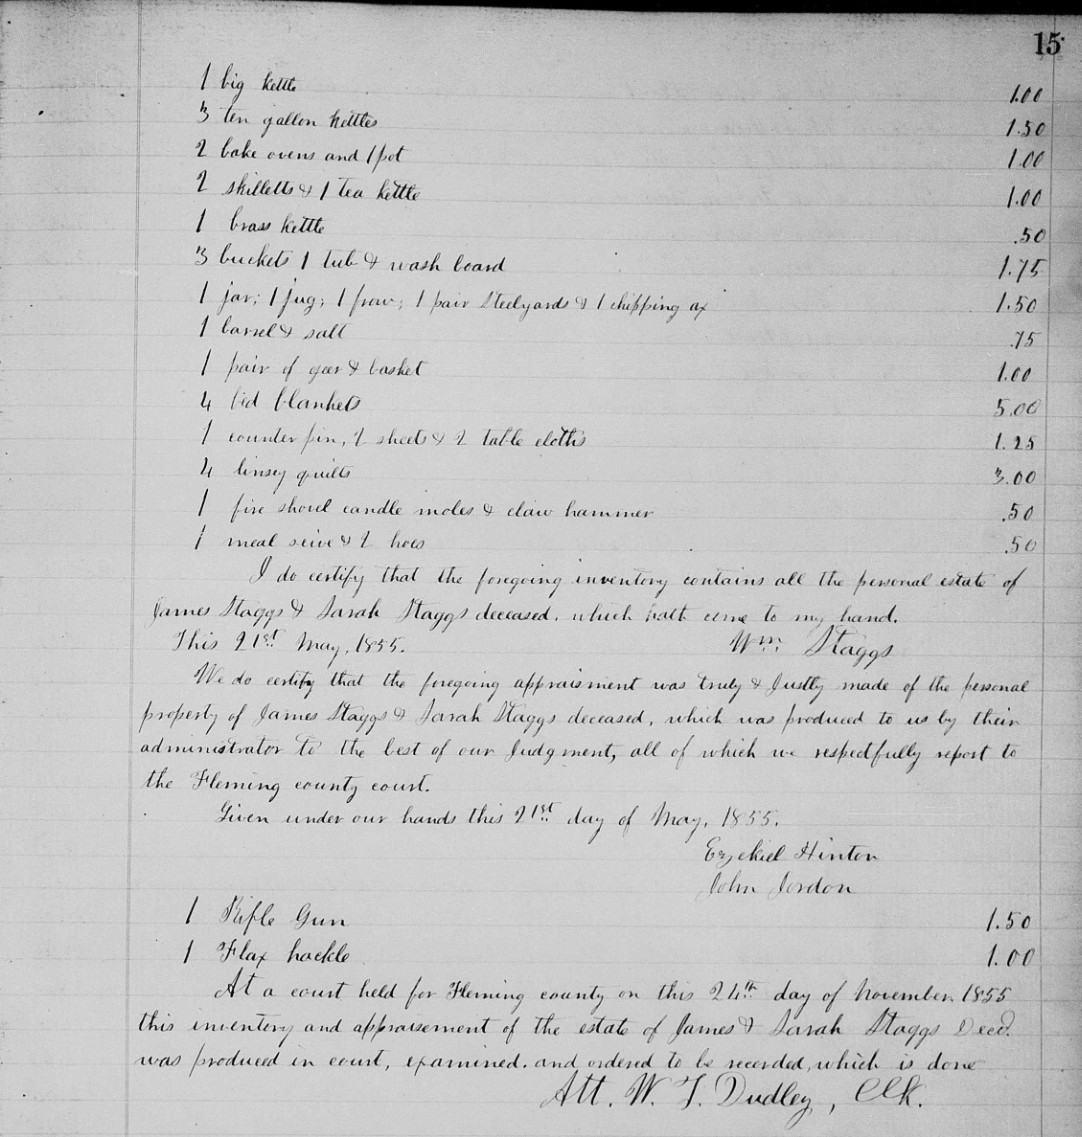 15
1 big kettle 1.00
3 ten gallon kettles 1.50
2 bake ovens and 1 pot 1.00
2 skilletts & 1 tea kettle 1.00
1 brass kettle .50
3 buckets 1 tub & wash board 1.75
1 jar; 1 jug; 1 frow; 1 pair Steelyards & 1 chipping ax 1.50
1 barrel & salt .75
1 pair of geer & basket 1.00
4 bed blankets 5.00
1 counter pin, 2 sheets & 2 table cloths 1.25
4 linsey quilts 3.00
1 fire shovel candle moles & claw hammer .50
1 meal seive & 2 hoes .50
I do certify that the foregoing inventory contains all the personal estate of
James Staggs & Sarah Staggs deceased, which hath come to my hand.
This 21st May, 1855. Wm Staggs
We do certify that the foregoing appraisment was truly & Justly made of the personal
property of James Staggs & Sarah Staggs deceased, which was produced to us by their
administrator to the best of our Judgment, all of which we respectfully report to
the Fleming county court.
Given under our hands this 21st day of May, 1855.
Ezekiel Hinton
John Jordon
1 Rifle Gun 1.50
1 Flax hackle 1.00
At a court held for Fleming county on this 24th day of November 1855
this inventory and appraisement of the estate of James & Sarah Staggs Decd.
was produced in court, examined. and ordered to be recorded, which is done
Att. W. T. Dudley, Clk.